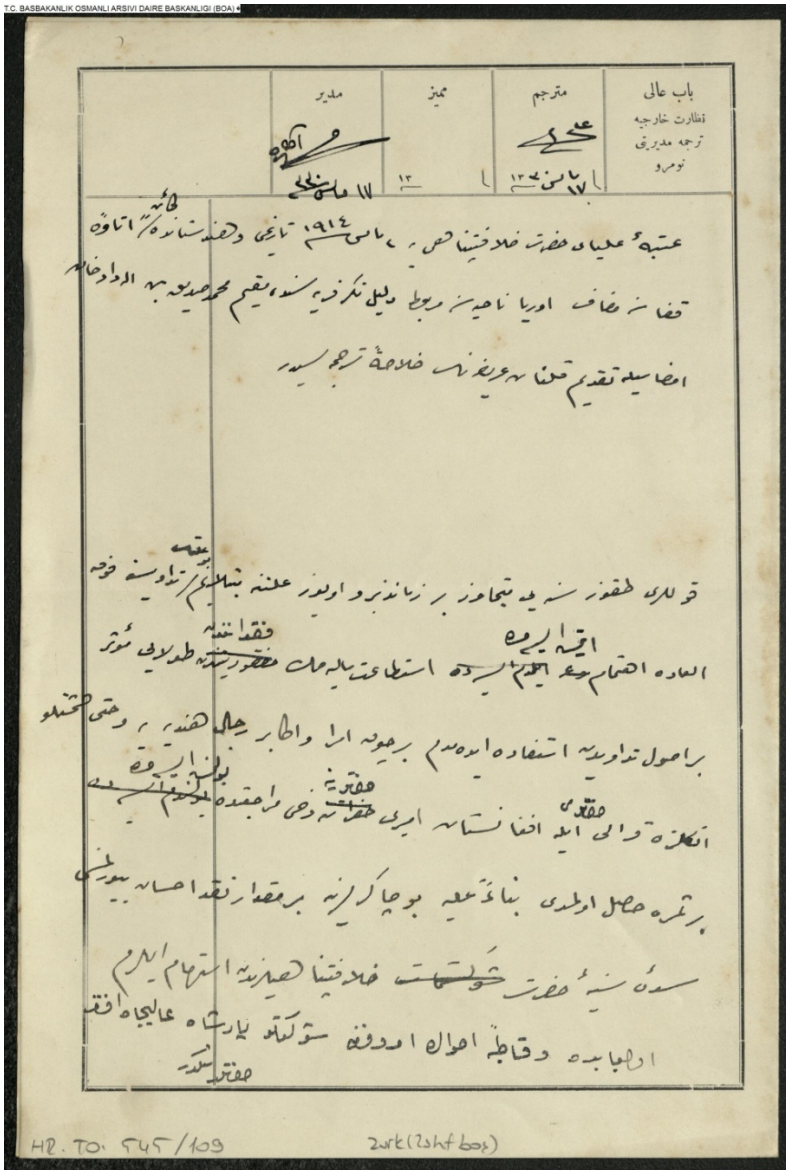 T.C. BASBAKANLIK OSMANLI ARSIVI DAIRE BASKANLIGI (BOA)
باب عالی
نظارت خارجیه
ترجمه مدیریتی
نومرو
مترجم
ممیز
مدیر
١٧ مارس ٣٣٠
عتبهٔ علیای حضرت خلافتپناهی‌یه ٢ مارس ١٩١٤ تاریخی و هندستانده كائن اتاوه
قضاسنه مضاف اوریا ناحیه‌سنه مربوط قریه‌سنده مقیم محمد صدیق بن
امضاسیله تقدیم قلنان عریضه‌نك خلاصهٔ ترجمه‌سیدر
قوللری طقوز سنه‌یی متجاوز بر زماندنبرو علتنه مبتلایم بو علتك تداویسنه فوق
العاده اهتمام استطاعت مالیه‌مك فقداندن طولایی مؤثر
بر اصول تداویدن استفاده ایده‌مدم بر چوق امرا و اكابر رجال هندیه‌یه و حتی حشمتلو
انكلتره قرالی حضرتلری ایله افغانستان امیری حضرتلرینه دخی مراجعتده
بر ثمره حاصل اولمدی بناءً علیه بو چاكرلرینه بر مقدار نقد احسان بیورلمسنی
سدهٔ سنیهٔ حضرت خلافتپناهیلرندن استرحام ایلرم
اولبابده و قاطبهٔ احوالده امر و فرمان شوكتلو پادشاه عالیجاه افندمز
حضرتلرینكدر
HR. TO. 545/109